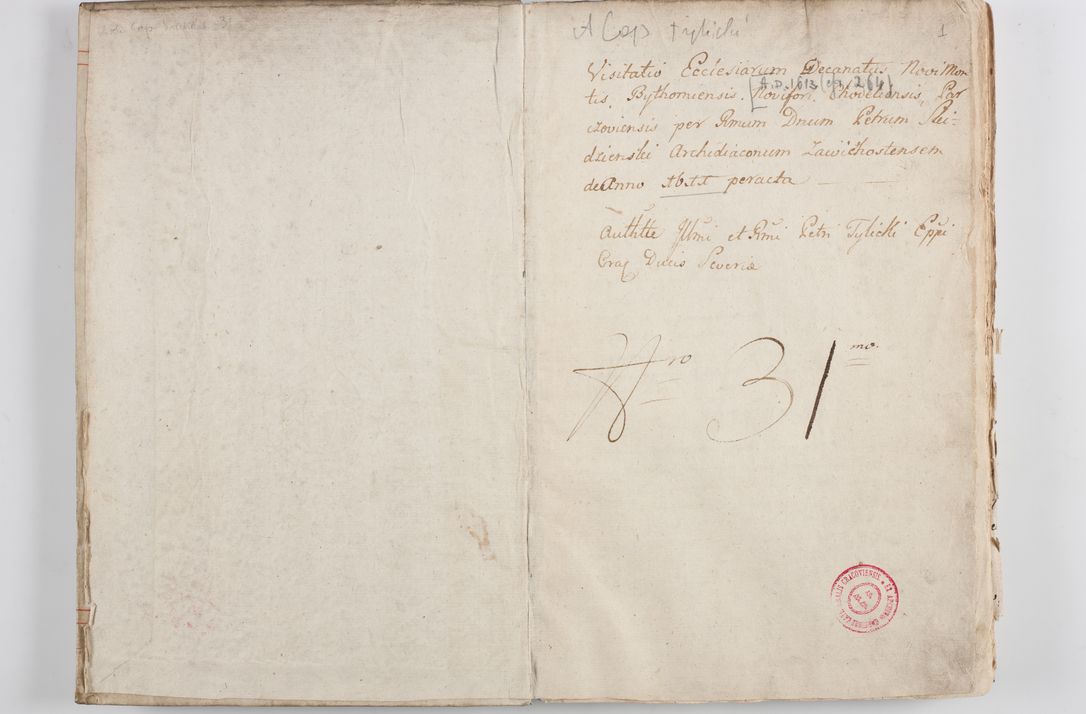 A Cap Tylicki
1
Visitatio Ecclesiarum Decanatus Novi Mon
tis, Bythomiensis, Novifori, Chodeliensis, Par
[A.D. 1613 (
czoviensis per Rmum Dnum Petrum Ski-
dzienski Archidiaconum Zawichostensem
de Anno peracta
Authtte Illmi et Rmi Petri Tylicki Eppi
Crac Ducis Severiæ
Nro 31mo